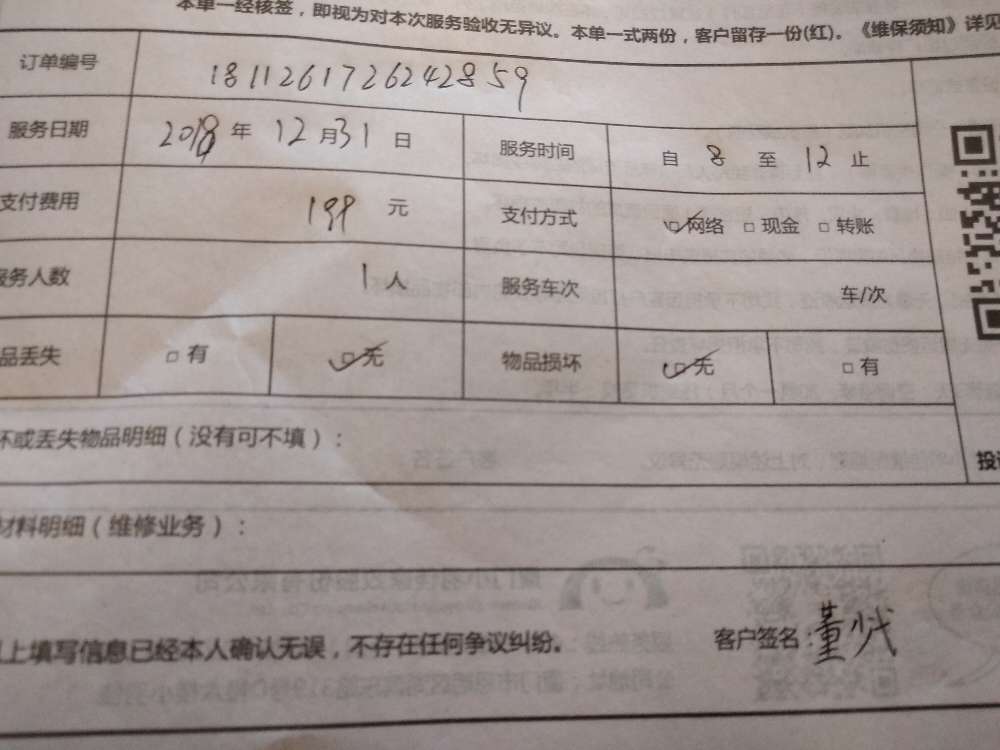 本单一经核签，即视为对本次服务验收无异议。本单一式两份，客户留存一份(红)。《维保须知》详见
订单编号 1811261726242859
服务日期 2018年12月31日 服务时间 自8至12止
支付费用 199元 支付方式 □网络 □现金 □转账
服务人数 1人 服务车次 车/次
品丢失 □有 □无 物品损坏 □无 □有
坏或丢失物品明细（没有可不填）：
投诉
材料明细（维修业务）：
以上填写信息已经本人确认无误，不存在任何争议纠纷。 客户签名：董